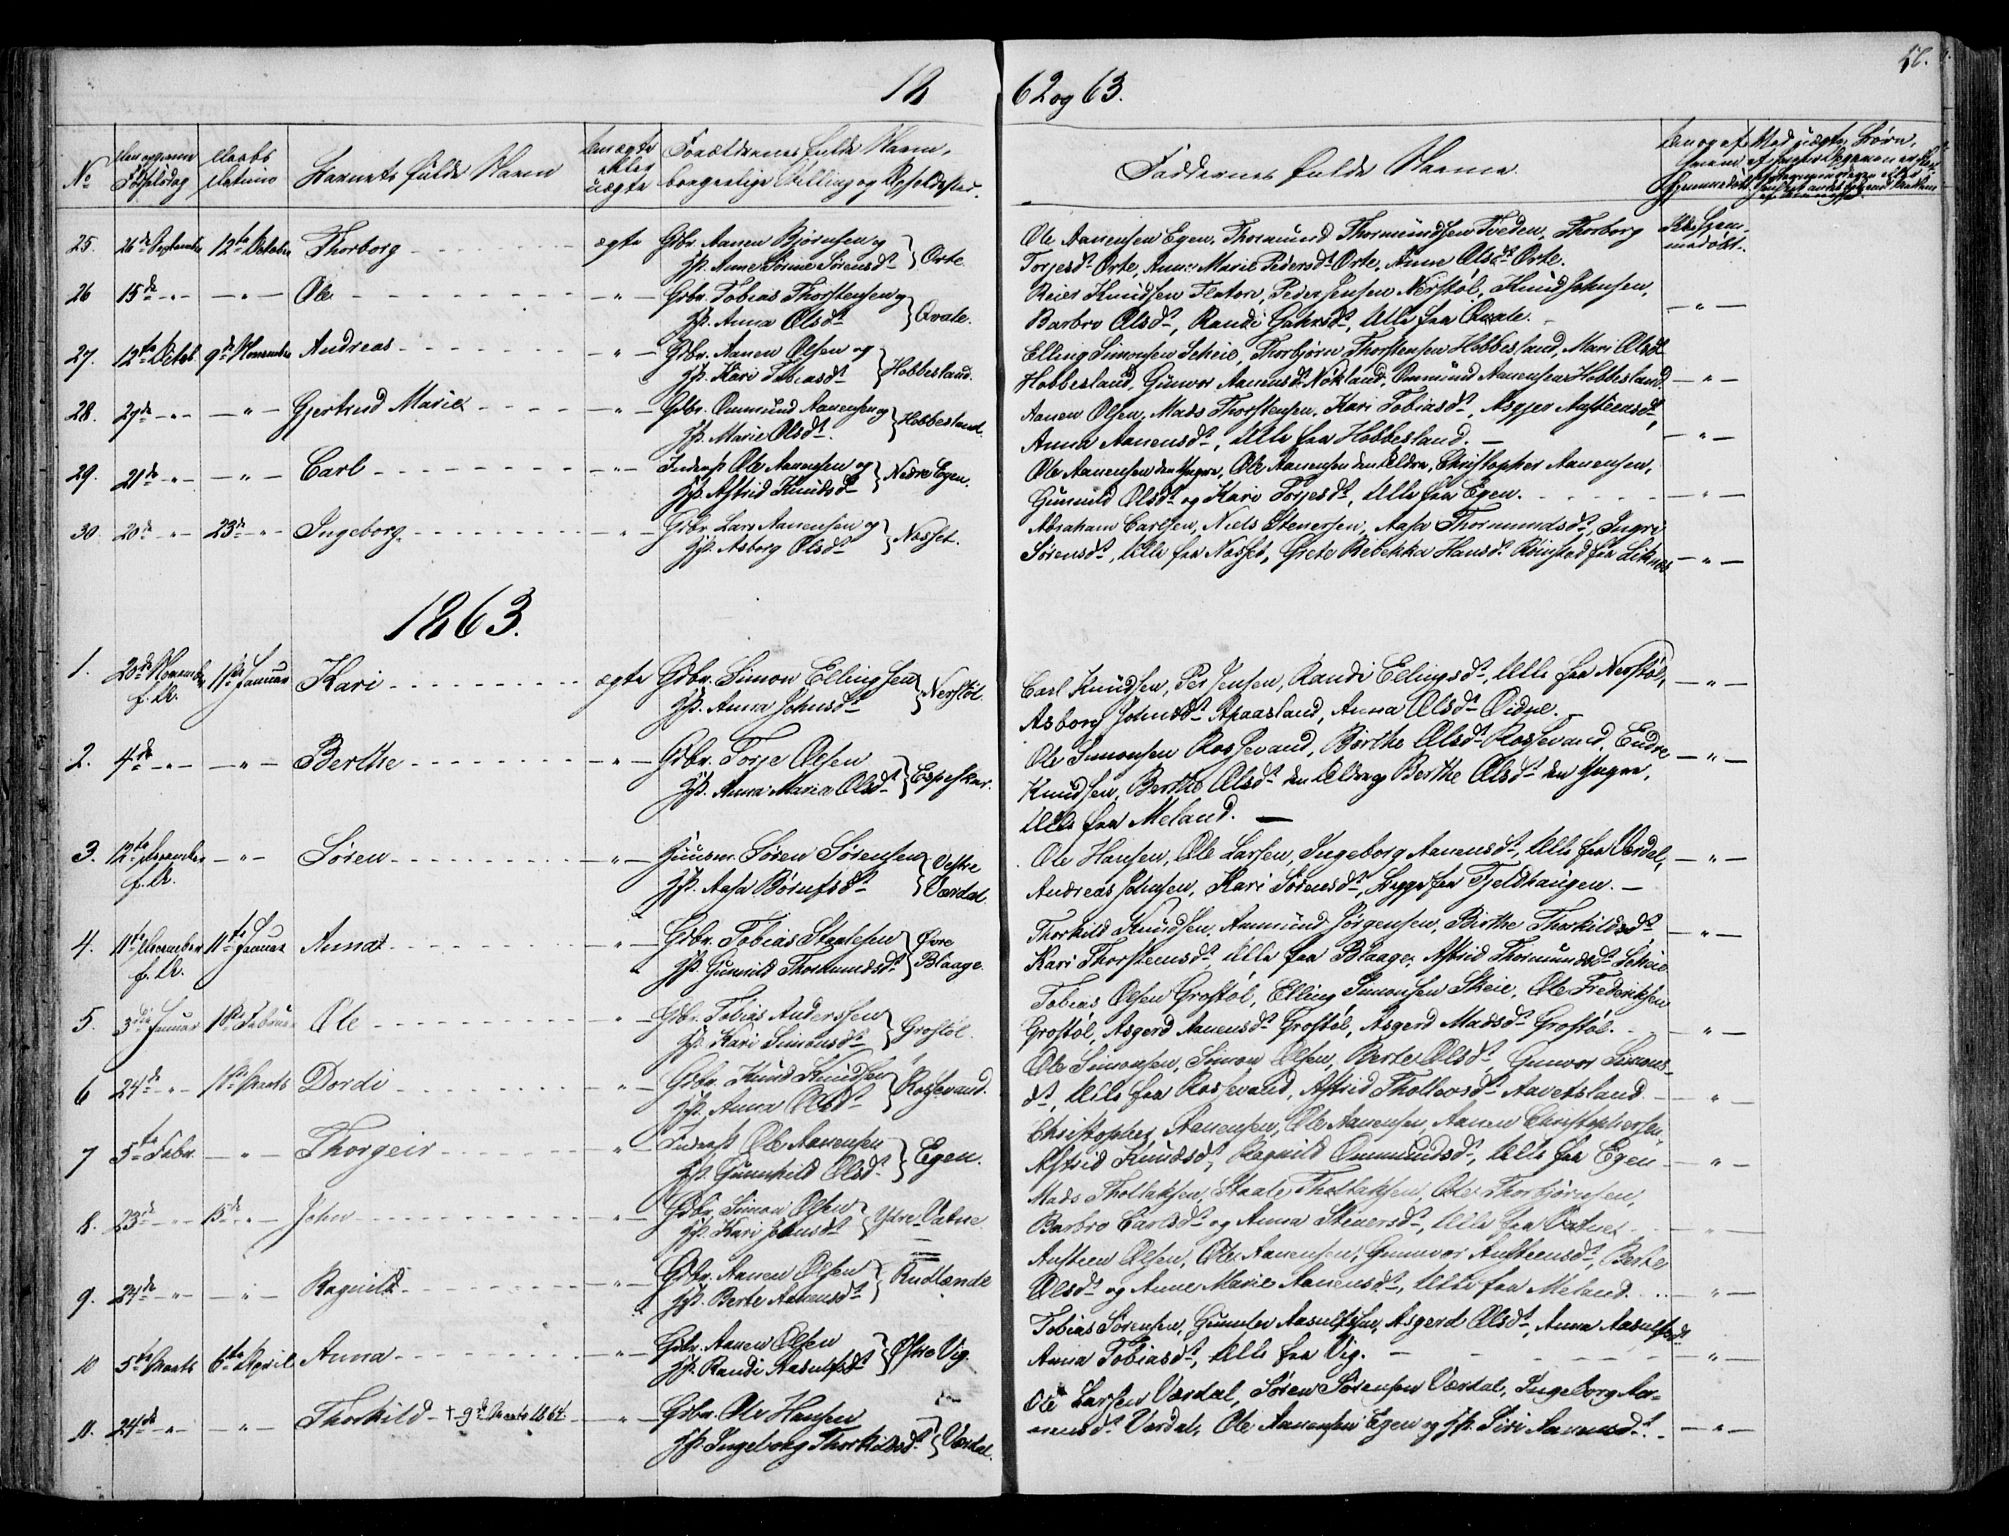 18 62 og 63.
No Den opgivne Fødselsdag Daabs Datum Barnets fulde Navn Om ægte eller uægte Forældrenes fulde Navn, borgerlige Stilling og Opholdssted. Faddernes fulde Navne.
25. 26de September 12te October Thorborg ægte Gbr. Aanen Bjørnsen og Hst. Anne Sørine Sørensdt } Orte
Ole Aanensen Egen, Thormund Thormundsen Tveden, Thorborg
Torjesdt Orte, Anne Marie Pedersdt Orte, Anne Olsdt Orte.
26 15de - " - - " - Ole - " - Gbr. Tobias Thorstensen og Hst. Anna Olsdt } Qvale.
Reier Knudsen Flaten, Peder Jensen Nerstøl, Knud Johnsen,
Barbro Olsdt, Randi Jahrsdt, Alle fra Qvale. - " -
27. 12te Octob 9de November Andreas - " - Gbr. Aanen Olsen og Hst. Kari Tobiasdt } Hobbesland.
Elling Simonsen Scheie, Thorbjørn Thorstensen Hobbesland, Mari Olsdt
Hobbesland, Gunvor Aanensdt Nøkland, Ommund Aanensen Hobbesland - " -
28. 29de - " - - " - Gjertrud Marie - " - Gbr. Ommund Aanensen og Hst. Marie Olsdt } Hobbesland.
Aanen Olsen, Mads Thorstensen, Kari Tobiasdt, Asgjer Austeensdt,
Anna Aanensdt, Alle fra Hobbesland. - " -
29. 21de - " - - " - Carl - " - Inderst Ole Aanensen og Hst. Astrid Knudsdt } Nedre Egen.
Ole Aanensen den Yngre, Ole Aanensen den Eldre, Christopher Aanensen,
Gunnild Olsdt og Kari Torjesdt, Alle fra Egen. - " -
30. 20de - " - 23de - " - Ingeborg - " - Gbr. Lars Aanensen og Hst. Asborg Olsdt } Næsset.
Abraham Carlsen, Niels Stenersen, Aasa Thormundsdt, Ingri
Sørensdt, Alle fra Næsset, Grete Bebekka Hansdt Rømstad fra Liknes - " -
1863.
1. 20de November f. A. 1ste Januar Kari ægte Gbr. Simon Ellingsen Hst. Anna Johnsdt } Nerstøl.
Carl Knudsen, Per Jensen, Randi Ellingsdt, Alle fra Nerstøl, - " -
Asborg Johnsdt Apaasland, Anna Olsdt Oidne.
2. 4de - " - - " - Berthe - " - Gbr. Torje Olsen Hst. Anna Maria Olsdt } Espeskar.
Ole Simonsen Rossevand, Berthe Olsdt Rossevand, Endre - " -
Knudsen, Berthe Olsdt den Eldre og Berthe Olsdt den Yngre,
Alle fra Meland.
3. 12te December f. A. - " - Søren - " - Huusm. Søren Sørensen Hst. Aasa Børufsdt } Vestre Værdal
Ole Hansen, Ole Larsen, Ingeborg Aanensdt, Alle fra Værdal, - " -
Andreas Johnsen, Kari Sørensdt, Begge fra Fjeldhaugen.
4. 11te December f. A. 11te Januar Anna " Gbr. Tobias Staalesen Hst. Gunvild Thormundsdt } Øvre Blaage.
Thorkild Knudsen, Aanmund Jørgensen, Birthe Thorkildsdt, - " -
Kari Thorsteensdt, Alle fra Blaage, Astrid Thormundsdt Scheie
5. 3die Januar 1ste Februar Ole " Gbr. Tobias Anderssen Hst. Kari Simonsdt } Grostøl.
Tobias Olsen Grostøl, Elling Simonsen Skeie, Ole Frederiksen
Grostøl, Asgerd Aanensdt Grostøl, Asgerd Madsdt Grostøl. - " -
6 24de - " - 1ste Marts Dordi - " - Gbr. Knud Knudsen Hst. Anna Olsdt } Rossevand.
Ole Simonsen, Simon Olsen, Berte Olsdt, Gunvor Simons-
dt, Alle fra Rossevand, Astrid Thollevsdt Aavetsland - " -
7 5te Febr. - " - Thorgeir " Inderst Ole Aanensen Hst. Gunnhild Olsdt } Egen.
Christopher Aanensen, Ole Aanensen, Aanen Christophersen,
Astrid Knudsdt, Ragnild Ommundsdt, Alle fra Egen - " -
8. 23de - " - 15de - " - John - " - Gbr. Simon Olsen Hst. Kari Johnsdt } Ytre Vatne
Mads Thollaksen, Staale Thollaksen, Ole Thorbjørnsen,
Barbro Carlsdt og Anna Stenersdt, Alle fra Vatne - " -
9. 24de - " - - " - Ragnild - " - Gbr. Aanen Olsen Hst. Berte Aanensdt } Rudlænde
Austeen Olsen, Ole Aanensen, Gunnvor Austeensdt, Berte
Olsdt og Anne Marie Aanensdt, Alle fra Meland. - " -
10 5te Marts 6te April Anna - " - Gbr. Aanen Olsen Hst. Randi Aasulfsdt } Østre Vig.
Tobias Sørensen, Gunnler Aasulfsen, Asgerd Olsdt, Anna Aasulfsdt
Anna Tobiasdt, Alle fra Vig. - " -
11. 24de - " - - " - Thorkild - † 9de Marts 1864 - " - Gbr. Ole Hansen Hst. Ingeborg Thorkildsdt } Værdal.
Ole Larsen Værdal, Søren Sørensen Værdal, Ingeborg Aa-
nensdt Værdal, Ole Aanensen Egen og Hst. Siri Aanensdt. - " -